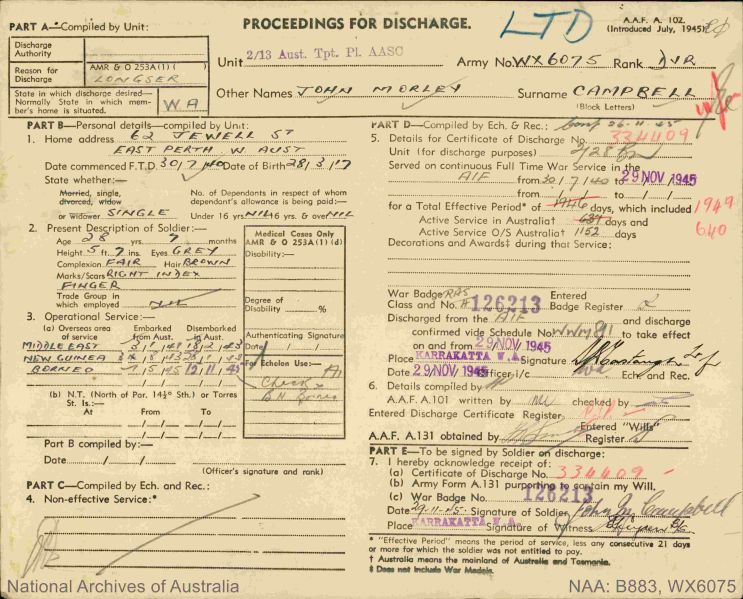 PART A—Compiled by Unit:
PROCEEDINGS FOR DISCHARGE.
LTD
A.A.F. A. 102.
(Introduced July, 1945)
Discharge Authority
Reason for Discharge
AMR & O 253A(1) ( )
LONGSER
State in which discharge desired—Normally State in which member's home is situated.
W A
Unit 2/13 Aust. Tpt. Pl. AASC
Army No. WX6075 Rank DVR
Other Names JOHN MORLEY
Surname CAMPBELL
(Block Letters)
PART B—Personal details—compiled by Unit:
1. Home address 62 JEWELL ST
EAST PERTH W. AUST
Date commenced F.T.D. 30/7/40 Date of Birth 28/3/17
State whether:—
Married, single, divorced, widow or widower SINGLE
No. of Dependants in respect of whom allowance is being paid:—
Under 16 yrs NIL 16 yrs. & over NIL
2. Present Description of Soldier:—
Age 28 yrs. 7 months
Height 5 ft. 7 ins. Eyes GREY
Complexion FAIR Hair BROWN
Marks/Scars RIGHT INDEX
FINGER
Trade Group in which employed NIL
3. Operational Service:—
(a) Overseas area of service
Embarked from Aust.
Disembarked in Aust.
MIDDLE EAST
NEW GUINEA
BORNEO
(b) N.T. (North of Par. 14½° Sth.) or Torres St. Is.:—
At From To
Part B compiled by:—
Date / /
(Officer's signature and rank)
Medical Cases Only
AMR & O 253A(1) (d)
Disability:—
Degree of Disability %
Authenticating Signature
Date / /
For Echelon Use:—
Check
PART C—Compiled by Ech. and Rec.:
4. Non-effective Service:*
PART D—Compiled by Ech. & Rec.:
26-11-45
5. Details for Certificate of Discharge No. 334409
Unit (for discharge purposes) 2/28 Bn
Served on continuous Full Time War Service in the
AIF from 30/7/40 to 29 NOV 1945
for a Total Effective Period* of 1946 days, which included 1949
Active Service in Australia† days 640
Active Service O/S Australia† 1152 days
Decorations and Awards‡ during that Service:
War Badge RAS
Class and No. A 126213
Entered Badge Register
Discharged from the AIF and discharge
confirmed vide Schedule No. to take effect
on and from 29 NOV 1945
Place KARRAKATTA W.A. Signature
Date 29 NOV 1945 Officer i/c Ech. and Rec.
6. Details compiled by
A.A.F. A.101 written by checked by
Entered Discharge Certificate Register
A.A.F. A.131 obtained by
Entered "Wills" Register
PART E—To be signed by Soldier on discharge:
7. I hereby acknowledge receipt of:
(a) Certificate of Discharge No. 334409
(b) Army Form A.131 purporting to contain my Will.
(c) War Badge No. 126213
Date 29-11-45 Signature of Soldier John M Campbell
Place KARRAKATTA W.A. Signature of Witness
* "Effective Period" means the period of service, less any consecutive 21 days
or more for which the soldier was not entitled to pay.
† Australia means the mainland of Australia and Tasmania.
‡ Does not include War Medals.
National Archives of Australia
NAA: B883, WX6075